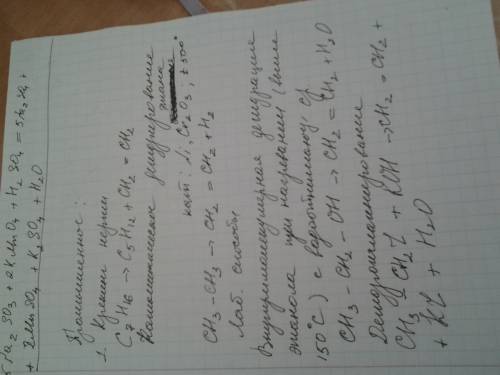 5Na2SO3 + 2KMnO4 + H2SO4 = 5Na2SO4 +
+ 2MnSO4 + K2SO4 + H2O
Промышленное:
1. Крекинг нефти
C7H16 → C5H12 + CH2 = CH2
Каталитическое дегидрирование
этана
кат: Ni, Cr2O3, t 500°
CH3 - CH3 → CH2 = CH2 + H2
Лаб. способ
Внутримолекулярная дегидрация
этанола при нагревании (выше
150°C) с водоотнимающ. ср
CH3 - CH2 - OH → CH2 = CH2 + H2O
CH3 - CH2I + KOH → CH2 = CH2 +
+ KI + H2O